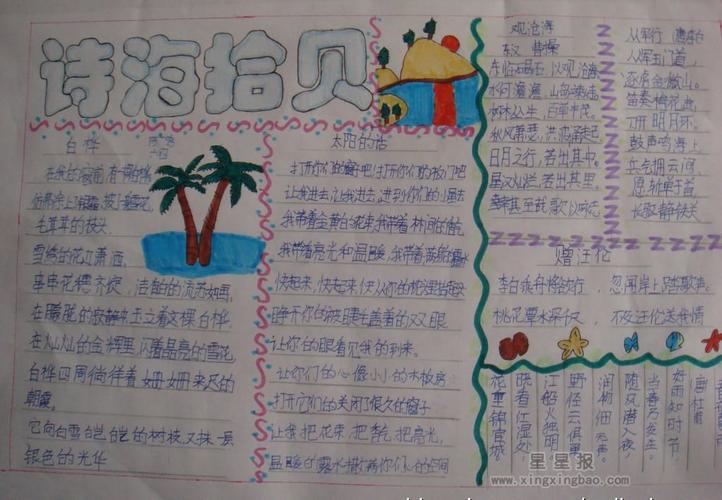 诗海拾贝
白桦
在我的窗前有一棵白桦
仿佛涂上银霜,披了雪花,
毛茸茸的枝头
雪绣的花边潇洒,
串串花穗齐绽,洁白的流苏如画,
在朦胧的寂静中玉立着这棵白桦
在灿灿的金辉里,闪着晶亮的雪花
白桦四周徜徉着姗姗来迟的
朝霞
它向白雪皑皑的树枝,又抹一层
银色的光华
太阳的话
打开你们的窗子吧打开你们的板门吧
让我进去,让我进去,进到你们的小屋去
我带着金黄的花束,我带着林间的香气
我带着亮光和温暖,我带着满身的露水
快起来,快起来,快从你的枕头里抬起头
睁开你的被睫毛盖着的双眼
让你的眼看见我的到来。
让你们的心像小小的木板房:
打开它们的关闭了很久的窗子
让我把花束,把香气,把亮光,
温暖的露水撒满你们心的空间
观沧海
东汉 曹操
东临碣石,以观沧海
水何澹澹,山岛竦峙
树木丛生,百草丰茂。
秋风萧瑟,洪波涌起
日月之行,若出其中。
星汉灿烂,若出其里。
幸甚至哉,歌以咏志
从军行 唐 李白
从军玉门道,
逐虏金微山。
笛奏梅花曲,
刀开明月环。
鼓声鸣海上,
兵气拥云间。
愿斩单于首,
长驱静铁关
赠汪伦
李白乘舟将欲行,忽闻岸上踏歌声。
桃花潭水深千尺,不及汪伦送我情
唐 杜甫
好雨知时节,
当春乃发生。
随风潜入夜
润物细无声。
野径云俱黑
江船火独明
晓看红湿处
花重锦官城
星星报
www.xingxingbao.com